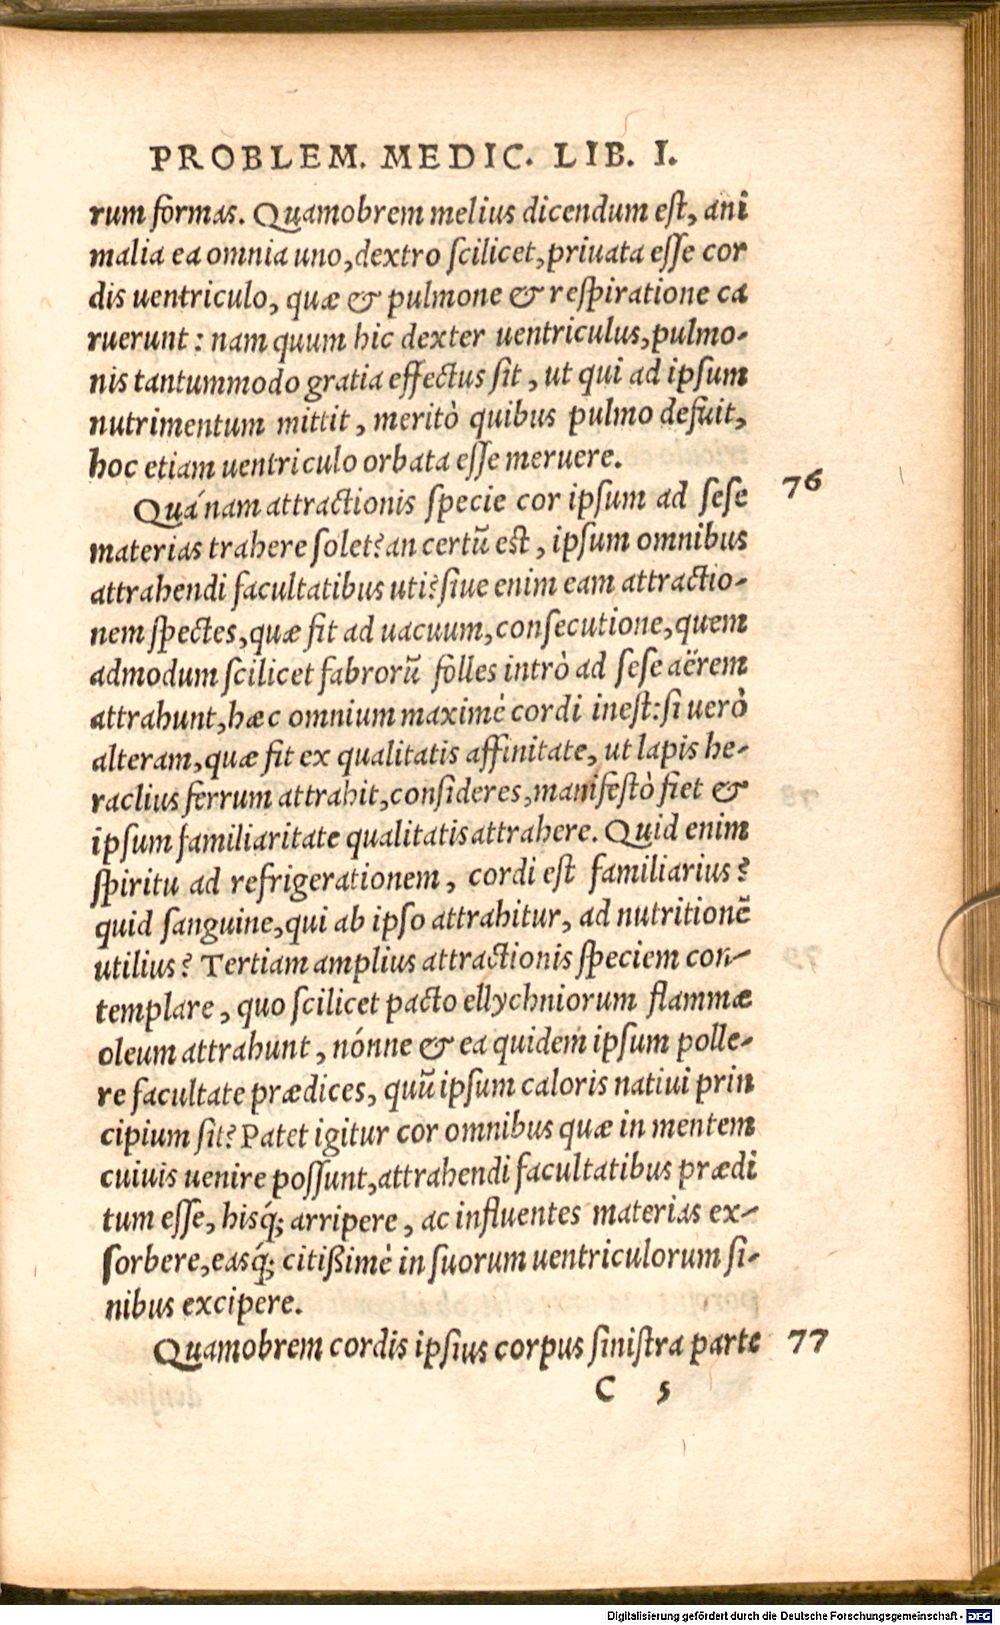 PROBLEM. MEDIC. LIB. I.
rum formas. Quamobrem melius dicendum est, ani
malia ea omnia uno, dextro scilicet, priuata esse cor
dis uentriculo, quæ & pulmone & respiratione ca
ruerunt: nam quum hic dexter uentriculus, pulmo-
nis tantummodo gratia effectus sit, ut qui ad ipsum
nutrimentum mittit, meritò quibus pulmo defuit,
hoc etiam uentriculo orbata esse meruere.
Quánam attractionis specie cor ipsum ad sese 76
materias trahere solet? an certũ est, ipsum omnibus
attrahendi facultatibus uti? siue enim eam attractio-
nem spectes, quæ fit ad uacuum, consecutione, quem
admodum scilicet fabrorũ folles intrò ad sese aërem
attrahunt, hæc omnium maximè cordi inest: si uerò
alteram, quæ fit ex qualitatis affinitate, ut lapis he-
raclius ferrum attrahit, consideres, manifestò fiet &
ipsum familiaritate qualitatis attrahere. Quid enim
spiritu ad refrigerationem, cordi est familiarius?
quid sanguine, qui ab ipso attrahitur, ad nutritionẽ
utilius? Tertiam amplius attractionis speciem con-
templare, quo scilicet pacto ellychniorum flammæ
oleum attrahunt, nónne & ea quidem ipsum polle-
re facultate prædices, quũ ipsum caloris natiui prin
cipium sit? Patet igitur cor omnibus quæ in mentem
cuiuis uenire possunt, attrahendi facultatibus prædi
tum esse, hisq́; arripere, ac influentes materias ex-
sorbere, easq́; citißimè in suorum uentriculorum si-
nibus excipere.
Quamobrem cordis ipsius corpus sinistra parte 77
C 5
Digitalisierung gefördert durch die Deutsche Forschungsgemeinschaft - DFG